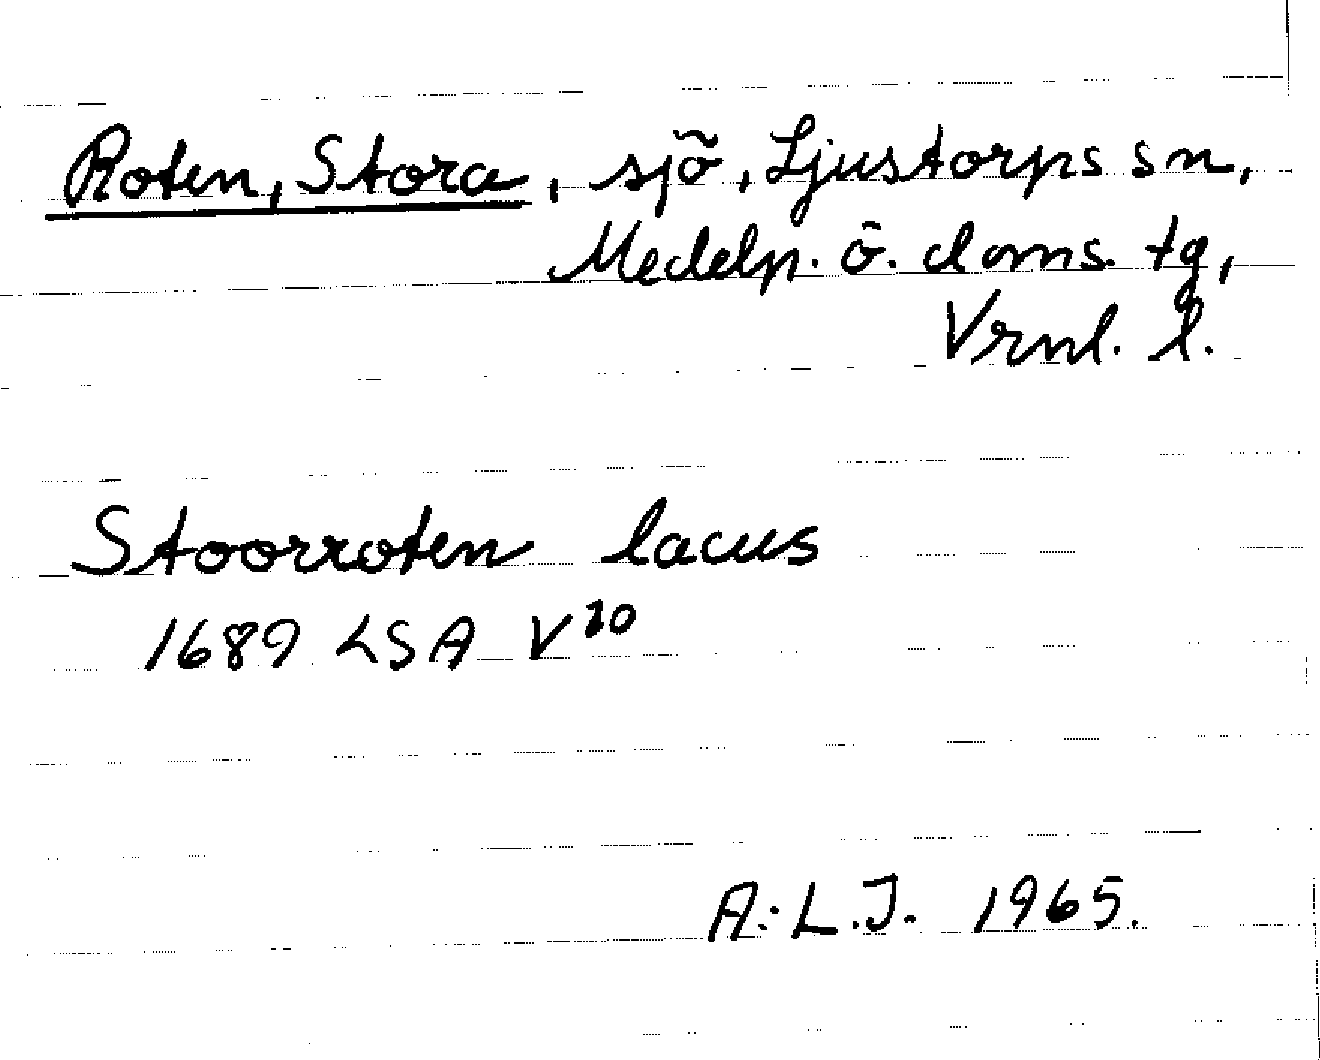 Roten, Stora, sjö, Ljustorps sn,
Medelp. ö. doms. tg,
Vrnl. l.
Stoorroten lacus
1689 LSA V¹⁰
A:L.J. 1965.